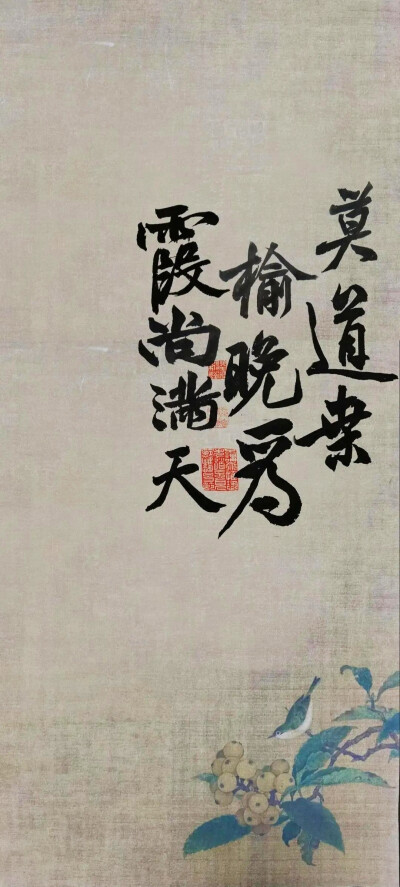 莫道桑
榆晚為
霞尚滿天